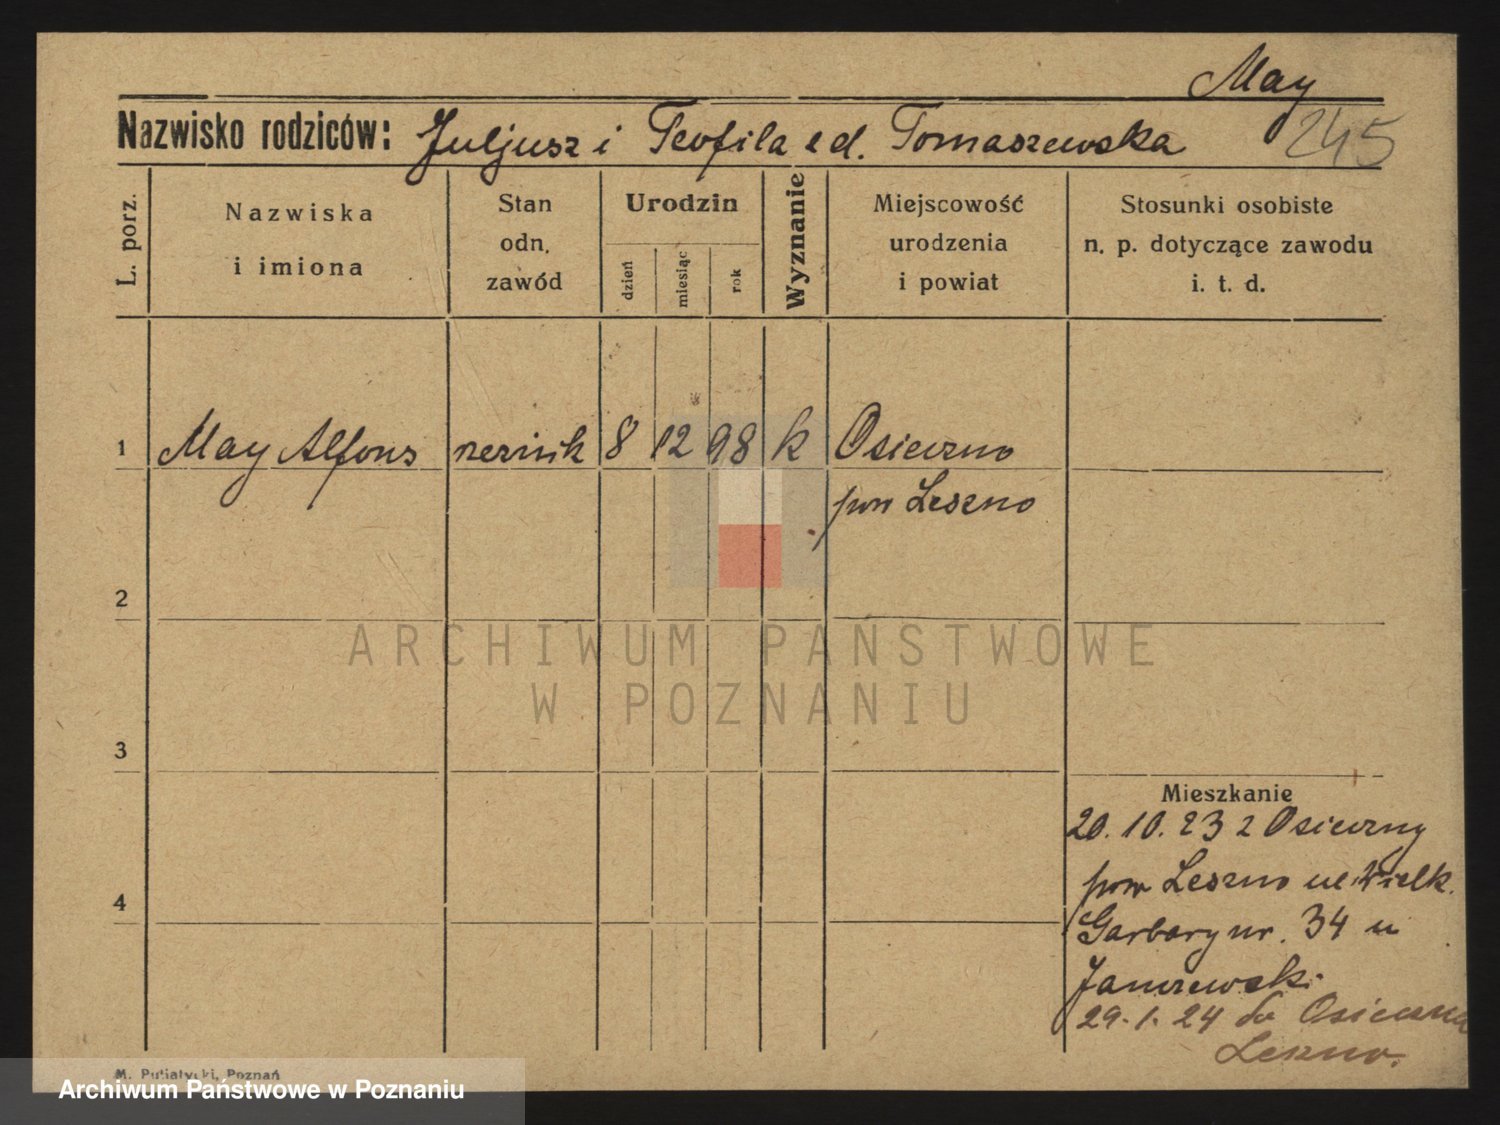 May
Nazwisko rodziców: Juljusz i Teofila z d. Tomaszewska 245
L. porz.
Nazwiska
i imiona
Stan
odn.
zawód
Urodzin
dzień
miesiąc
rok
Wyznanie
Miejscowość
urodzenia
i powiat
Stosunki osobiste
n. p. dotyczące zawodu
i. t. d.
1 May Alfons rzeźnik 8 12 98 k Osieczno
pow Leszno
2
ARCHIWUM PAŃSTWOWE
W POZNANIU
3
Mieszkanie
20. 10. 23 z Osieczny
pow Leszno ul. Wielk.
4
Garbary nr. 34 u
29. 1. 24 do Osieczna
Leszno.
M. Putiatycki, Poznań
Archiwum Państwowe w Poznaniu